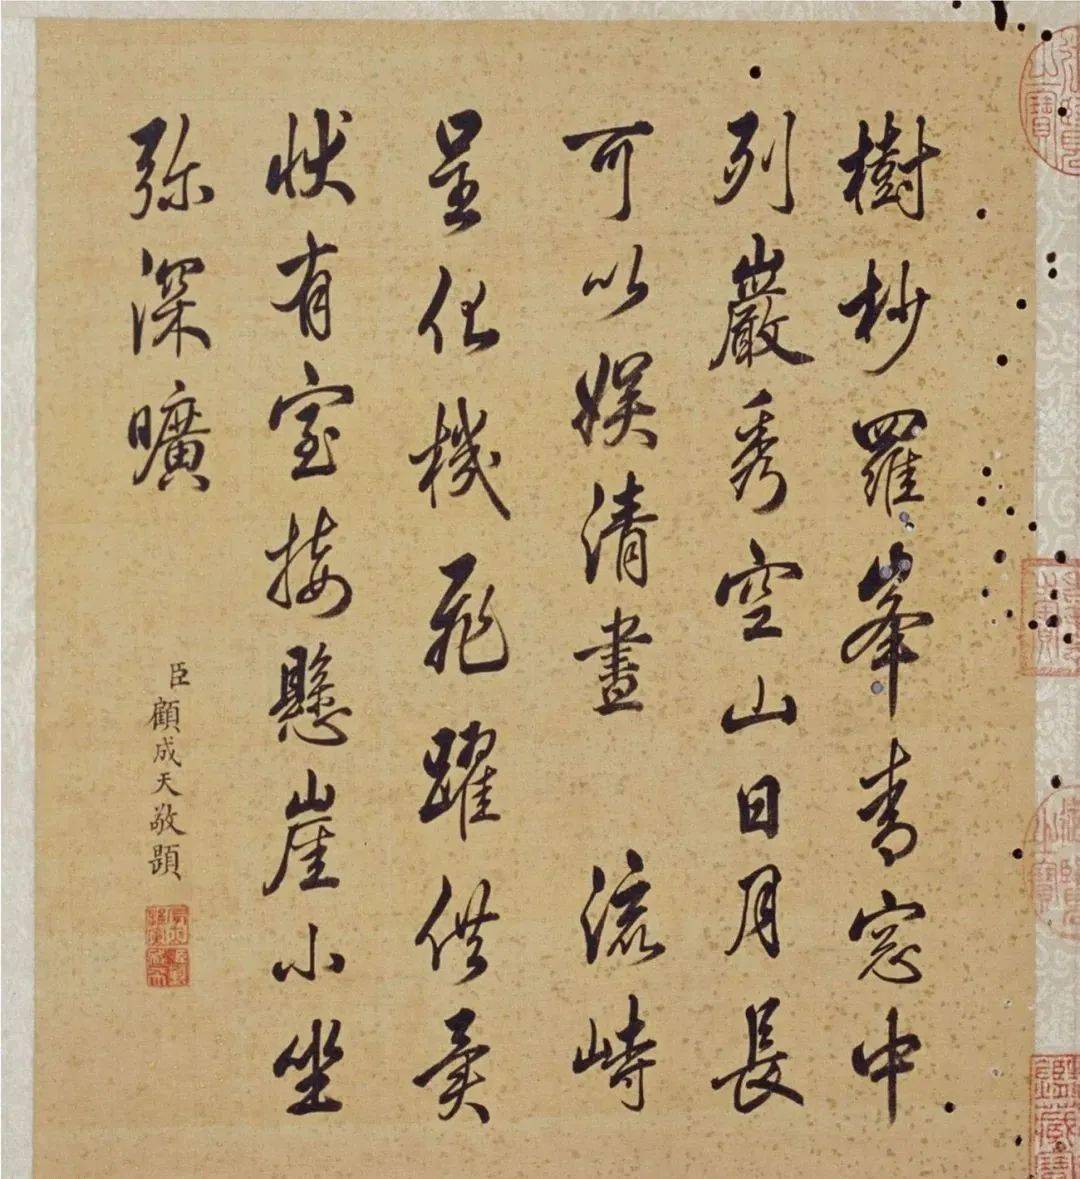 樹杪羅峯青窓中
列巖秀空山日月長
可以娱清晝 流峙
呈化機飛躍供異
狀有室接懸崖小坐
弥深曠
臣顧成天敬題